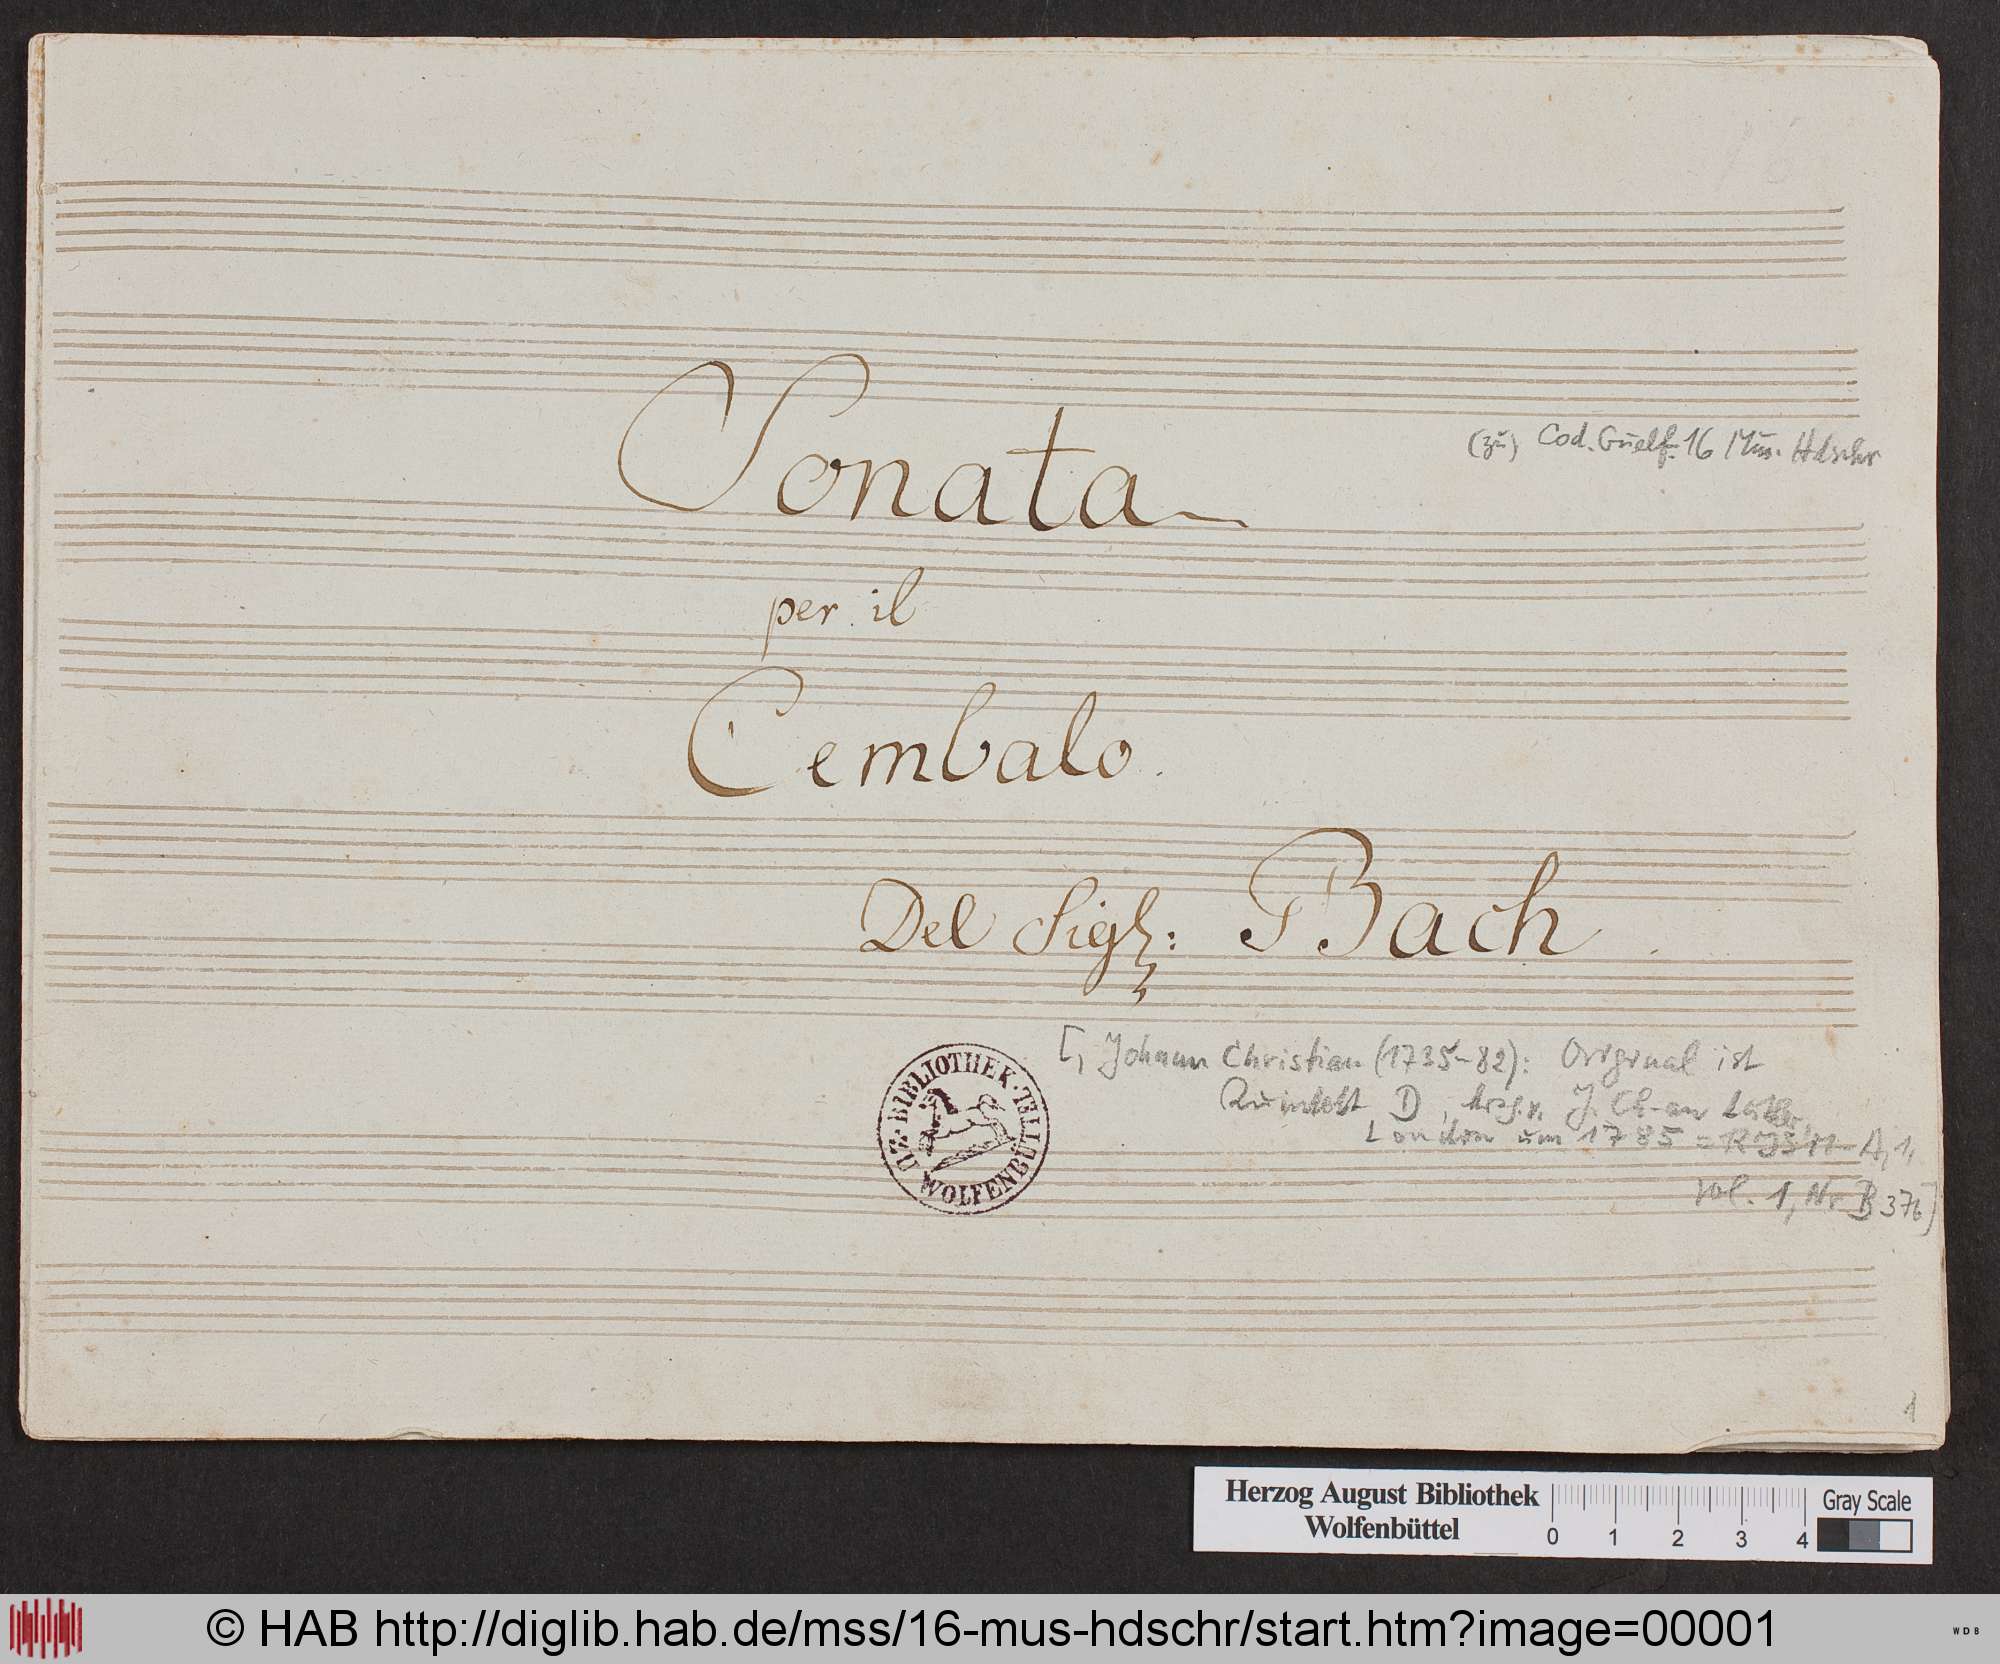 Sonata
(zu) Cod. Guelf. 16 Mus. Hdschr
per il
Cembalo.
Del Sigr: Bach
[, Johann Christian (1735-82): Original ist
Quintett D, hrsg. v. J. Ch-an Luther,
London um 1785 = RISM A, 1,
Vol. 1, Nr B 376]
ZU · BIBLIOTHEK · WOLFENBÜTTEL
1
Herzog August Bibliothek
Wolfenbüttel
0 1 2 3 4
Gray Scale
© HAB http://diglib.hab.de/mss/16-mus-hdschr/start.htm?image=00001
WDB